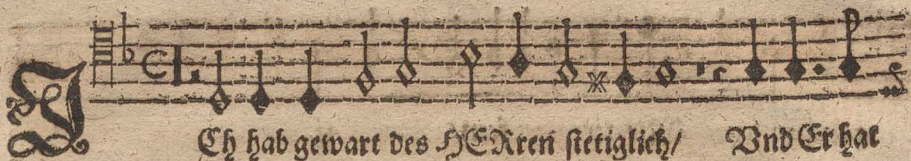 ICh hab gewart des HERren stetiglich/ Vnd Er hat